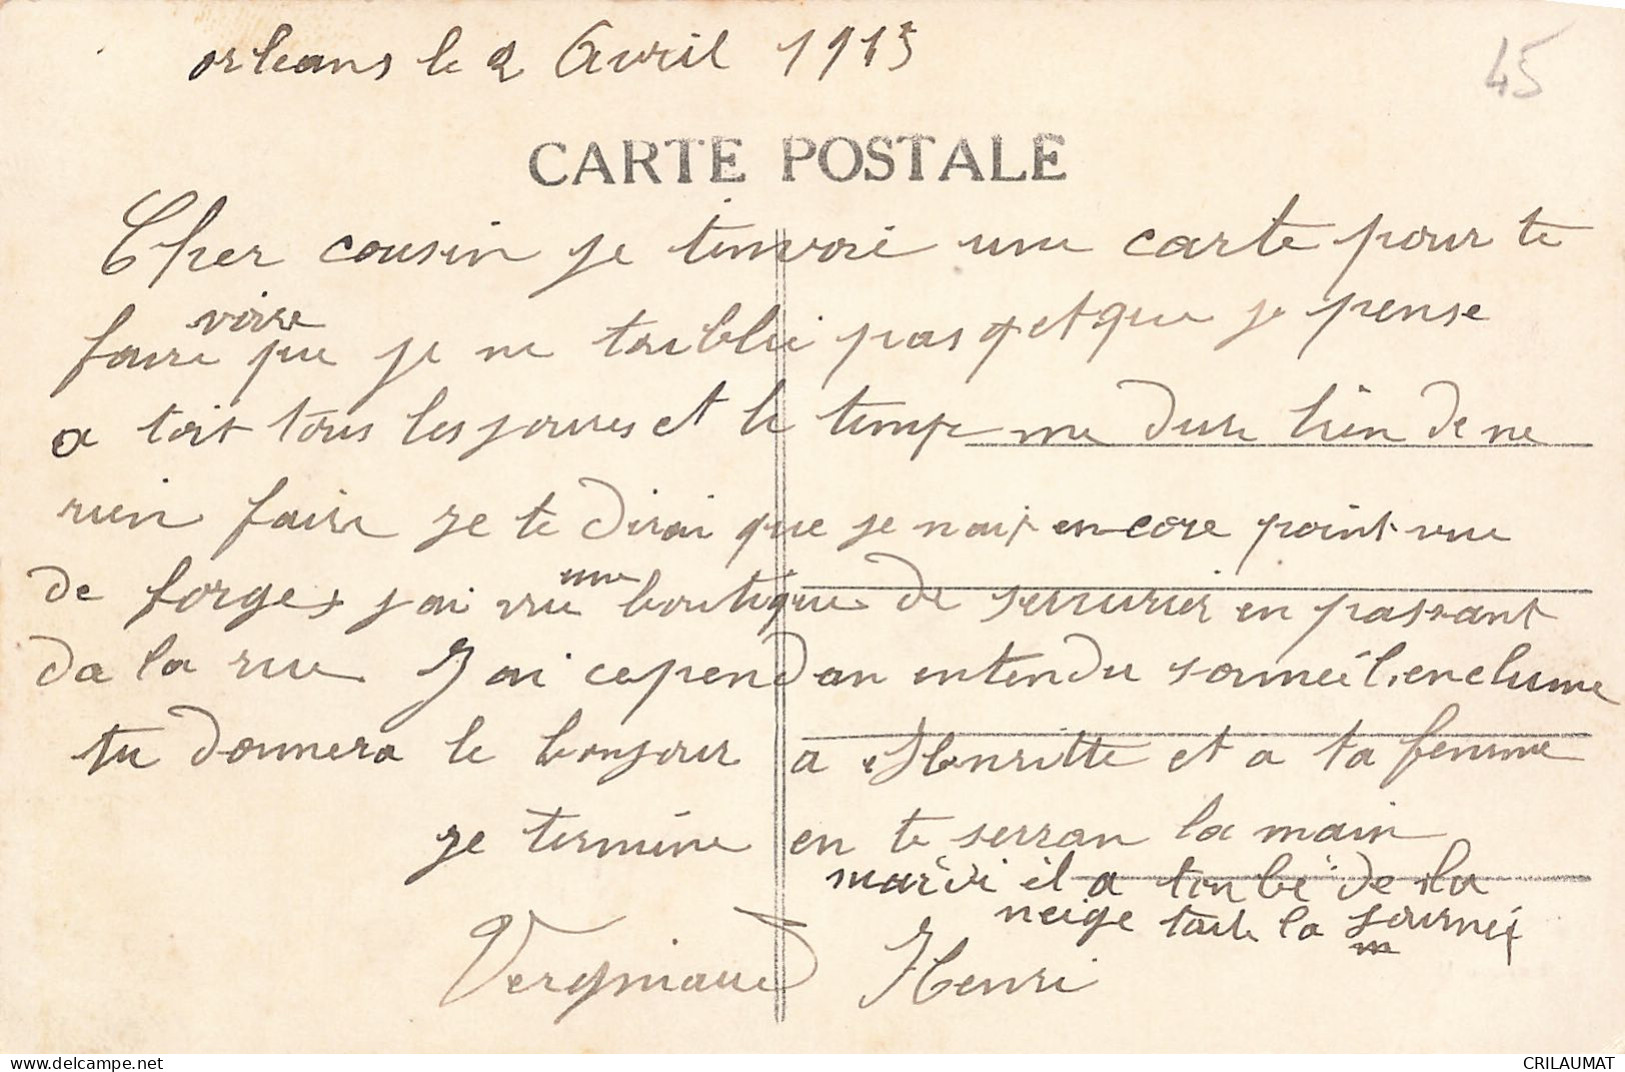 orleans le 2 Avril 1913
45
CARTE POSTALE
Cher cousin je tenvoie une carte pour te
voire
faire que je ne toublie pas et que je pense
a toit tous les jours et le temp me dure bien de ne
rien faire je te dirai que je nait encore point vue
une
de forges j ai vue boutique de serrurier en passant
da la rue J ai cependan entendu sonneil enclume
tu donnera le bonjour a Henritte et a ta femme
je termine en te serran la main
mardi il a tonbé de la
neige toute la journéé
Vergniaud Henri
CRILAUMAT
delcampe.net